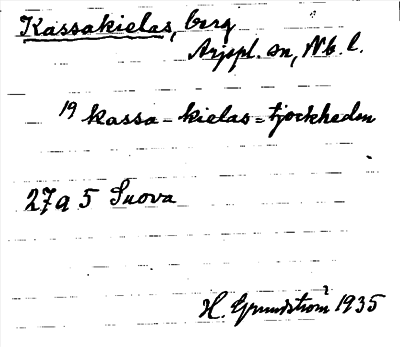 Kassakielas, berg
Arjepl. sn, Nb. l.
19 kassa-kielas = tjockheden
27 a 5 Suova
H. Grundström 1935